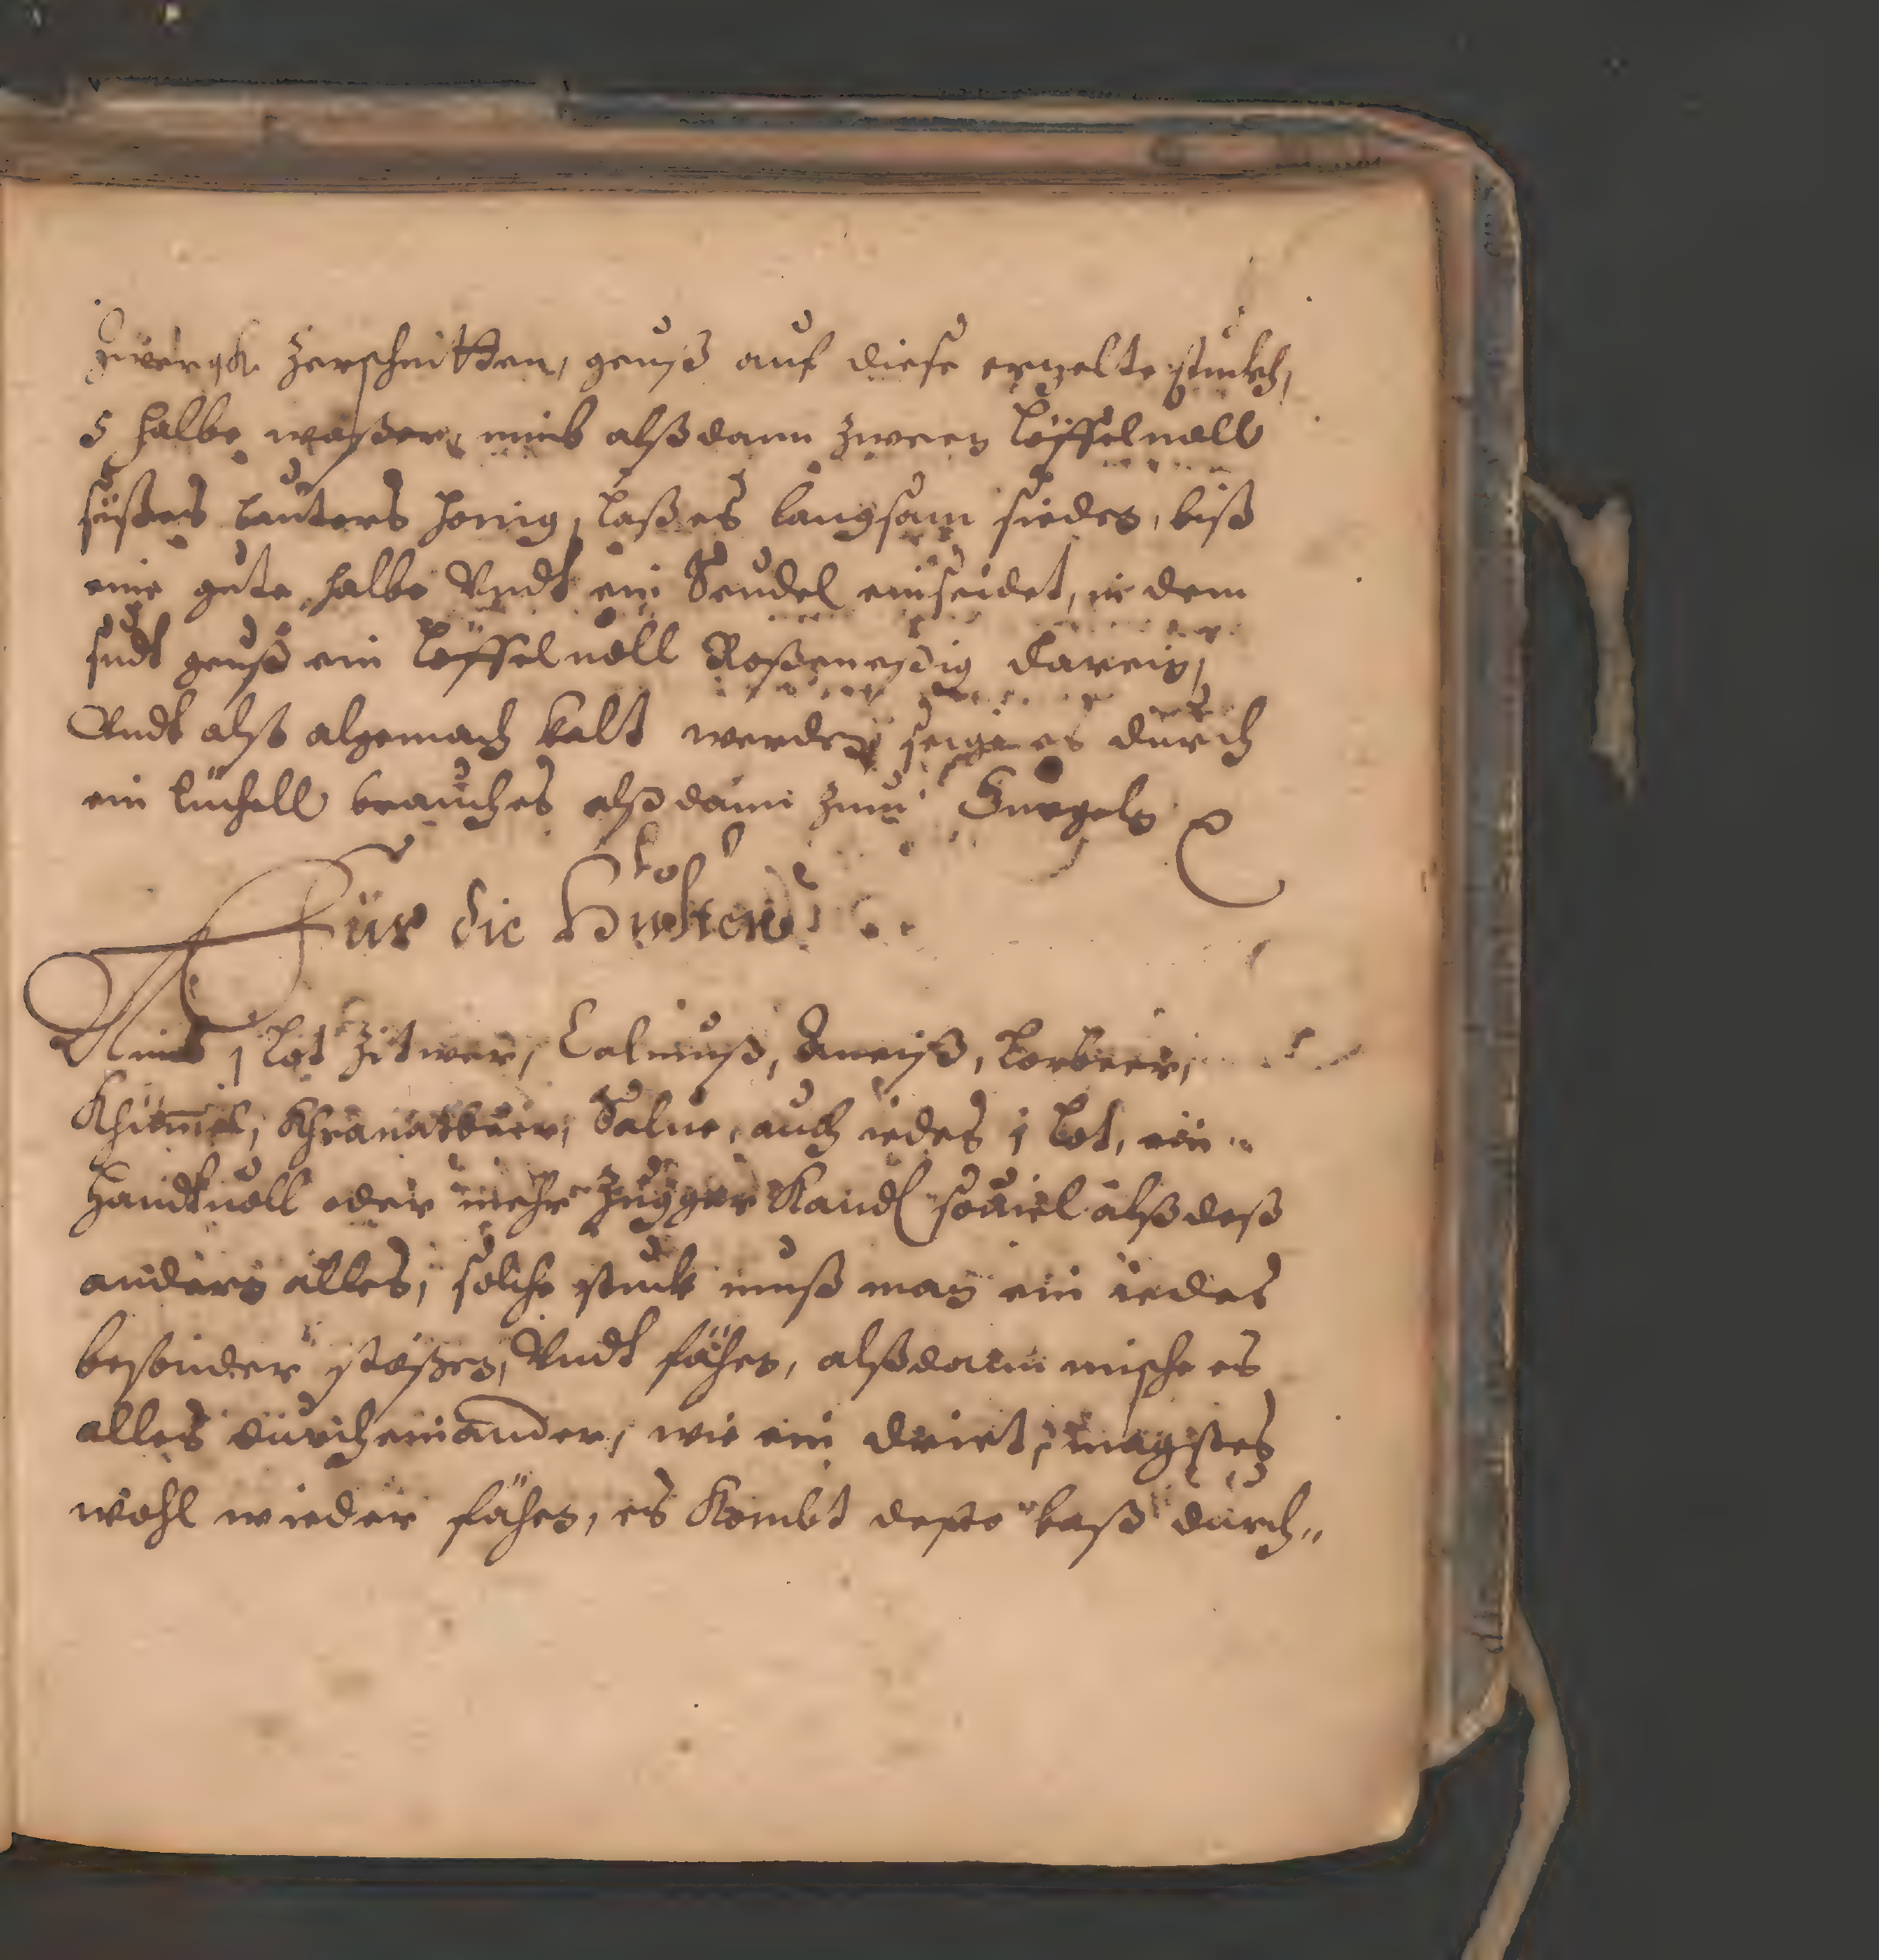 zwergh zerschnitten, geuß auf diese erzelte stuckh,
5 halbe waßer, nimb alßdann zween Löffeluoll
süßes lauters honig, laß es langsam sieden, biß
eine gute halbe Vndt ein Seudel einseidet, in dem
sudt geuß ein Löffeluoll Roßeneßig darein,
Vndt alß algemach kalt werden, seige es durch
ein tüchell brauch es alßdann zum Gurgeln
Für die Huosten
Nimb 1 Lot Zitwer, Calmuß, Aneiß, Lorbeer,
Khümel, Khranatbeer, Salue, auch iedes 1 Lot, ein
handtuoll oder mehr Zugger Kandl souiel alß deß
andern alles, solche stuck muß man ein iedes
besonder stoßen, Vndt fähen, alßdann mische es
alles durcheinander, wie ein driet, magstes
wohl wieder fähen, es Kombt desto baß durch